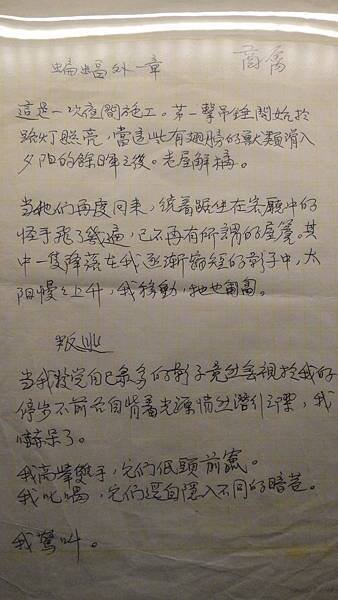 蝙蝠外一章 商禽
這是一次夜間施工。第一擊吊錘開始於
路灯照亮,當這些有翅膀的獸類滑入
夕陽的餘暉之後。老屋解構。
当牠們再度回來,繞着蹲坐在客廳中的
怪手飛了幾遍,已不再有所謂的屋簷。其
中一隻降落在我逐漸縮短的影子中,太
陽慢慢上升,我移動,牠也離開。
叛逃
当我數完自己眾多的影子竟然會視於我的
停步不前 各自背着光源 潛行
嚇呆了。
我高舉雙手,它們低頭前竄。
我叱喝,它們還自隱入不同的暗巷。
我驚叫。